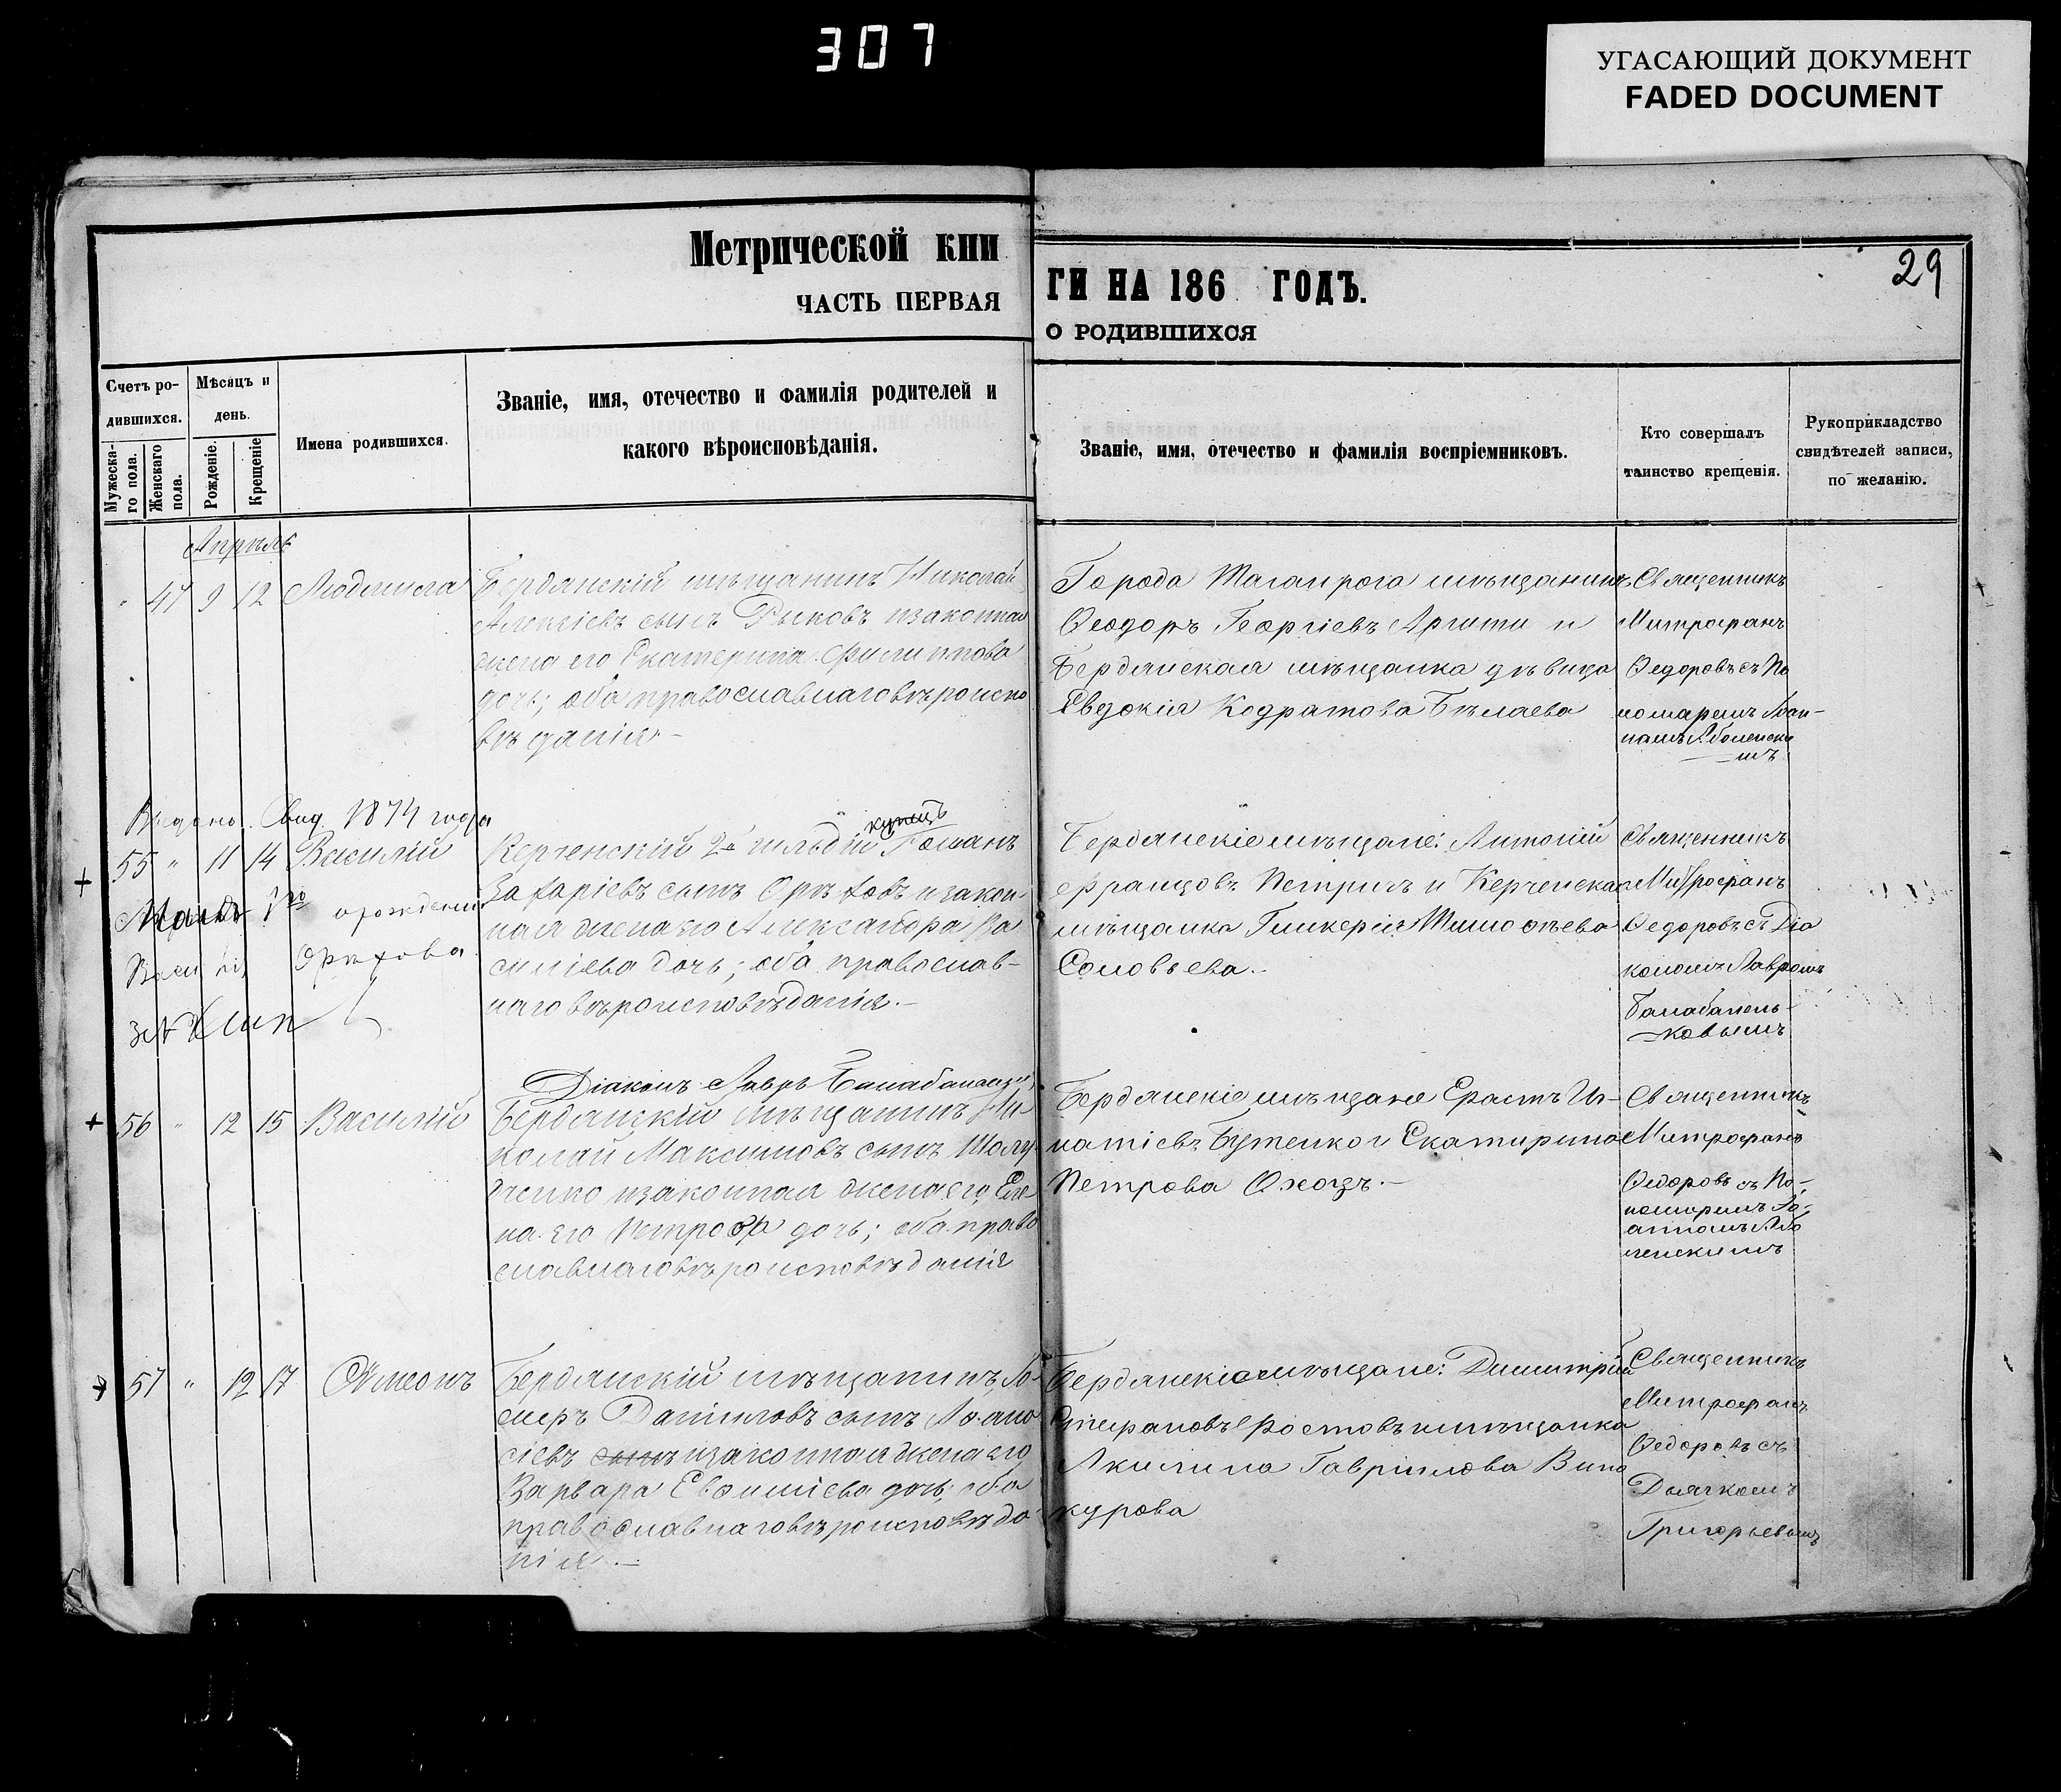 307
УГАСАЮЩИЙ ДОКУМЕНТ
FADED DOCUMENT
Метрической кни
ги на 186 годъ.
29
ЧАСТЬ ПЕРВАЯ
О РОДИВШИХСЯ
Счетъ ро-
дившихся.
Мужеска-
го пола.
Женскаго
пола.
Мѣсяцъ и
день.
Рожденіе.
Крещеніе
Имена родившихся.
Званіе, имя, отечество и фамилія родителей и
какого вѣроисповѣданія.
Званіе, имя, отечество и фамилія воспріемниковъ.
Кто совершалъ
таинство крещенія.
Рукоприкладство
свидѣтелей записи,
по желанію.
Апрѣль
" 47 9 12 Людмила
Бердянскій мѣщанинъ Николай
Алексіевъ сынъ Рыковъ и законная
жена его Екатерина Филиппова
дочь; оба православнаго вѣроиспо
вѣданія.-
Города Таганрога мѣщанинъ
Ѳеодоръ Георгіевъ и
Бердянская мѣщанка дѣвица
Евдокія Кодратова Бѣлаева
Священникъ
Митрофанъ
Ѳедоровъ съ По
номаремъ Іоан-
номъ
Свид. 1874 года
55 " 11 14 Василій
Орѣхова
Керченскій 2й гильдіи купецъ Романъ
Захаріевъ сынъ Орѣховъ и закон-
ная жена его Александра Ва
силіева дочь; оба православ-
наго вѣроисповѣданія.-
Бердянскіе мѣщане: Антоній
Францовъ Петричъ и Керченская
мѣщанка Гликерія Тимоѳѣева
Соловьева.-
Священникъ
Митрофанъ
Ѳедоровъ съ Діа
кономъ Лавромъ
Діаконъ Лавръ
+ 56 " 12 15 Василій
Бердянскій мѣщанинъ Ни
колай Максимовъ сынъ
и законная жена его Еле
на Петрова дочь; оба право
славнаго вѣроисповѣданія
Бердянскіе мѣщане Ерастъ Иг-
натіевъ Бутенко и Екатерина
Петрова
Священникъ
Митрофанъ
Ѳедоровъ съ По-
номаремъ Іо-
анномъ
57 " 12 17 Сѵмеонъ
Бердянскій мѣщанинъ
Даніиловъ сынъ Аѳана
сіевъ сынъ и законная жена его
Варвара Евѳиміева дочь; оба
православнаго вѣроисповѣда
нія.-
Бердянскіе мѣщане: Димитрій
Стефановъ Ростовъ и мѣщанка
Акилина Гавріилова Вино
курова
Священникъ
Митрофанъ
Ѳедоровъ съ
Дьячкомъ
Григорьевымъ